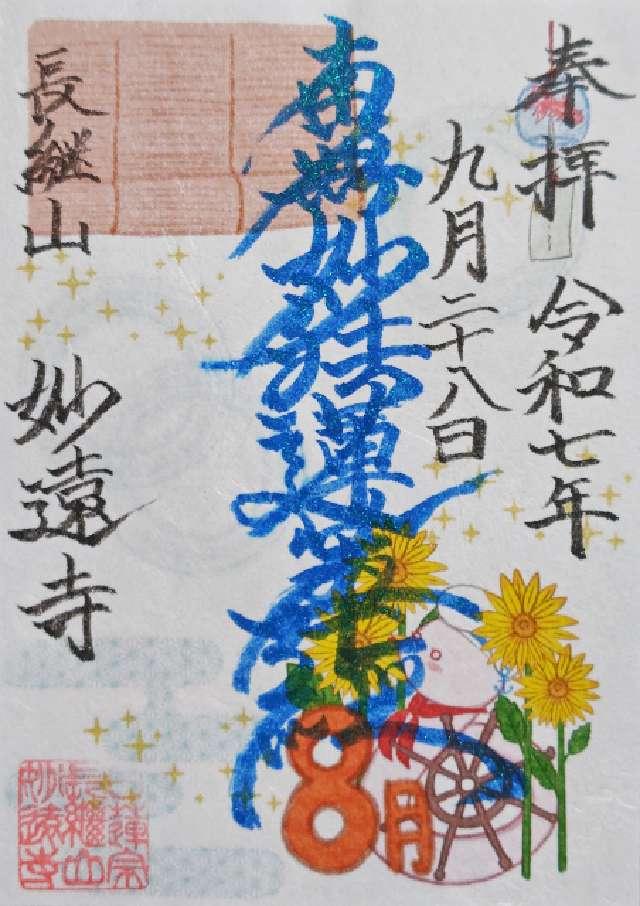 奉拝 令和七年
九月二十八日
南無妙法蓮華経
長継山
妙遠寺
8月
日蓮宗
長継山
妙遠寺